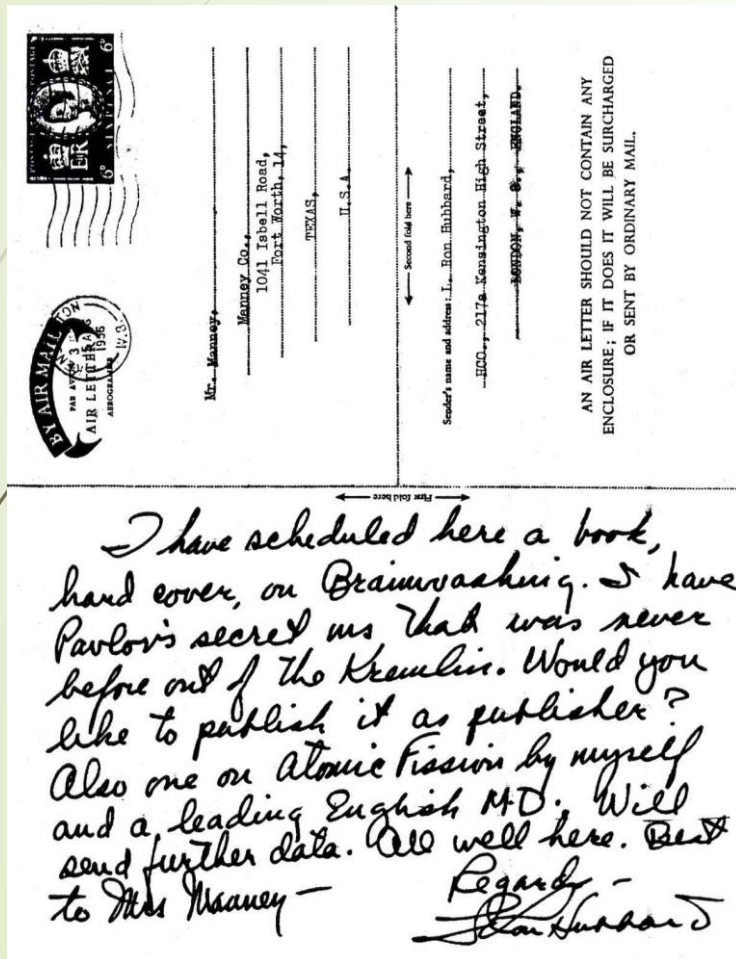 POSTAGE POSTAGE
E II R
6D SIXPENCE 6D
BY AIR MAIL
PAR AVION
AIR LETTER
AEROGRAMME
1956
W.8.
Mr. Manney,
Manney Co.,
1041 Isbell Road,
Fort Worth, 14,
TEXAS,
U.S.A.
Second fold here
Sender's name and address: L. Ron Hubbard,
HCO., 217a Kensington High Street,
LONDON, W. 8., ENGLAND.
AN AIR LETTER SHOULD NOT CONTAIN ANY
ENCLOSURE; IF IT DOES IT WILL BE SURCHARGED
OR SENT BY ORDINARY MAIL.
First fold here
I have scheduled here a book,
hard cover, on Brainwashing. I have
Pavlov's secret ms that was never
before out of the Kremlin. Would you
like to publish it as publisher?
Also one on Atomic Fission by myself
and a leading English M.D. Will
send further data. All well here. Best
to Mrs Manney—
Regards—
L Ron Hubbard